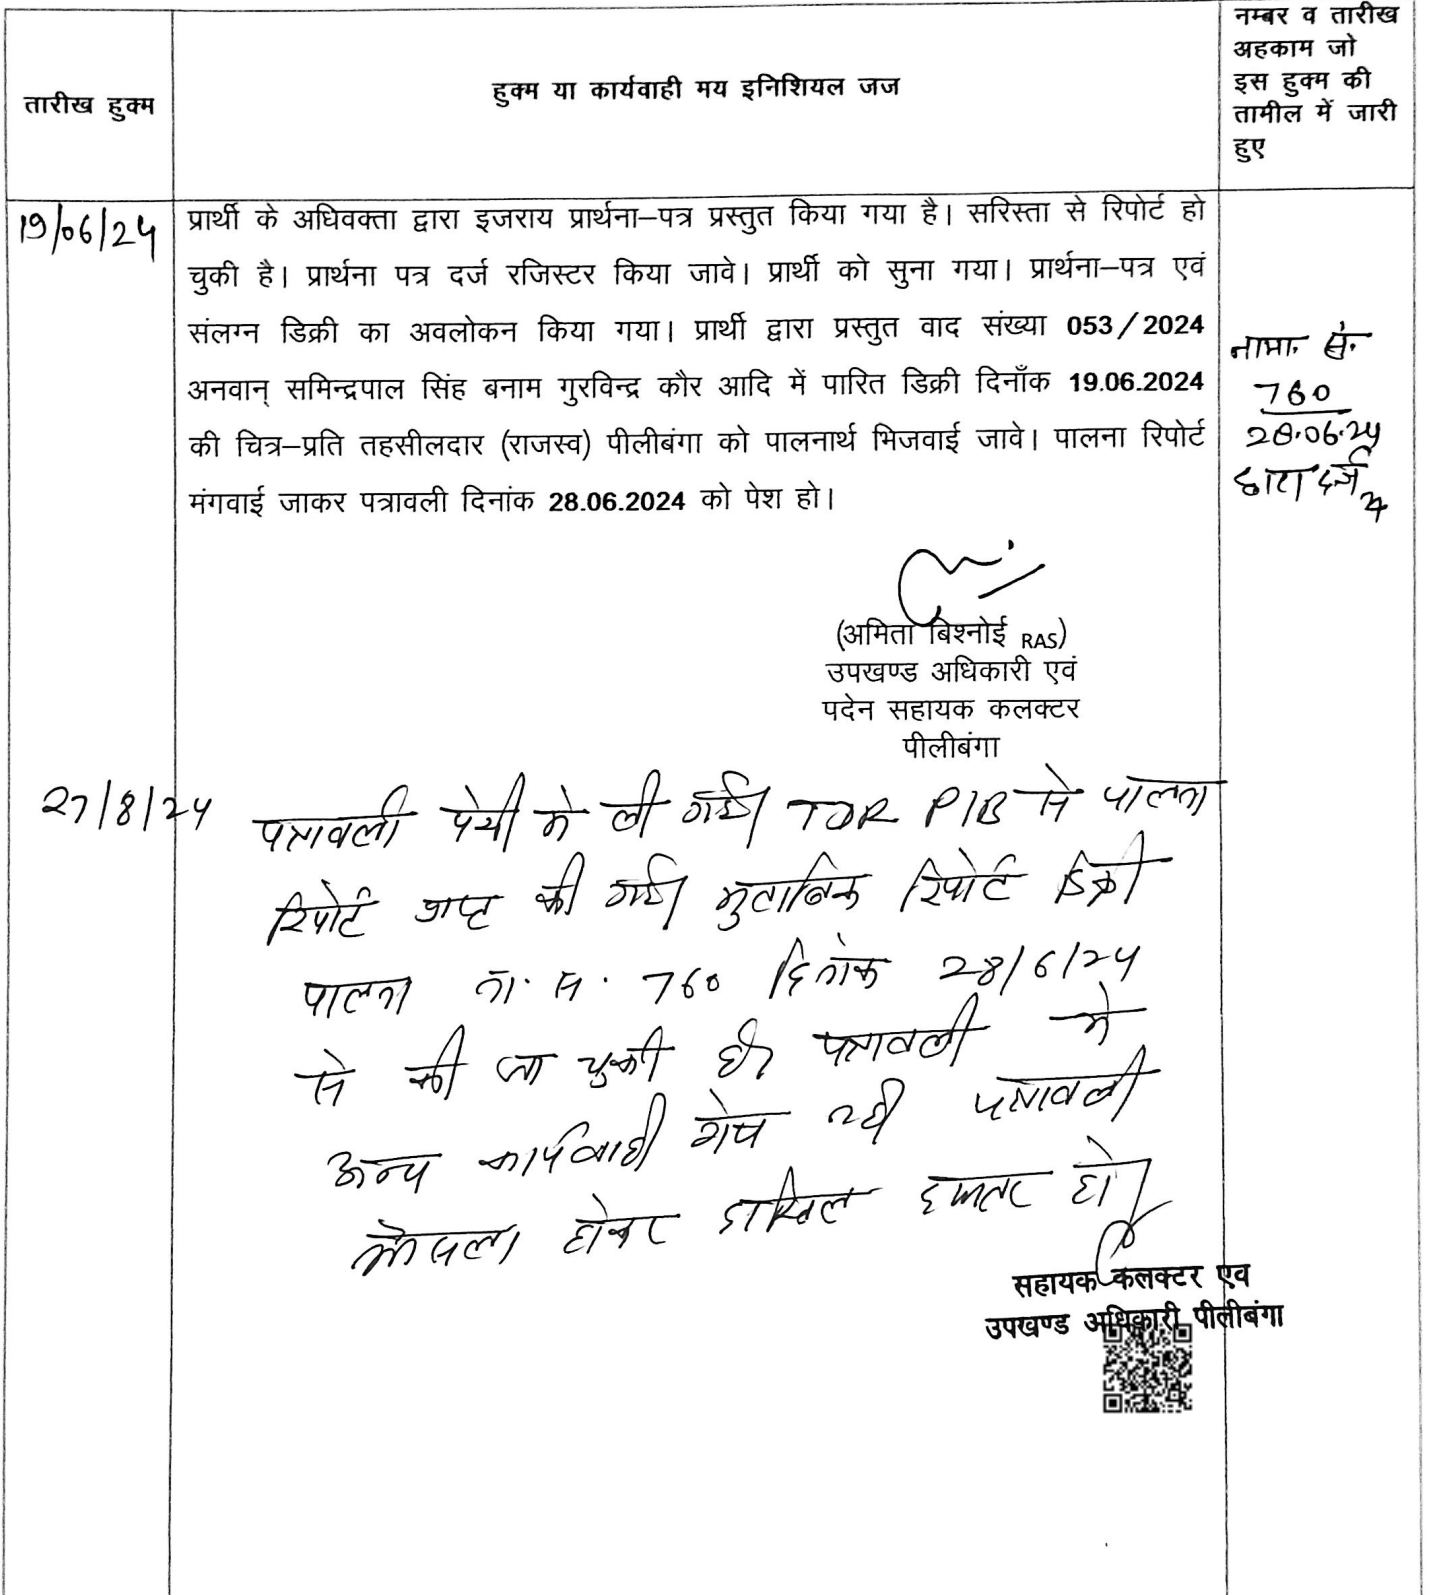 तारीख हुक्म
हुक्म या कार्यवाही मय इनिशियल जज
नम्बर व तारीख
अहकाम जो
इस हुक्म की
तामील में जारी
हुए
19/06/24
प्रार्थी के अधिवक्ता द्वारा इजराय प्रार्थना–पत्र प्रस्तुत किया गया है। सरिस्ता से रिपोर्ट हो
चुकी है। प्रार्थना पत्र दर्ज रजिस्टर किया जावे। प्रार्थी को सुना गया। प्रार्थना–पत्र एवं
संलग्न डिक्री का अवलोकन किया गया। प्रार्थी द्वारा प्रस्तुत वाद संख्या 053/2024
अनवान् समिन्द्रपाल सिंह बनाम गुरविन्द्र कौर आदि में पारित डिक्री दिनाँक 19.06.2024
की चित्र–प्रति तहसीलदार (राजस्व) पीलीबंगा को पालनार्थ भिजवाई जावे। पालना रिपोर्ट
मंगवाई जाकर पत्रावली दिनांक 28.06.2024 को पेश हो।
नामा. सं.
760
28.06.24
द्वारा दर्ज
(अमिता बिश्नोई RAS)
उपखण्ड अधिकारी एवं
पदेन सहायक कलक्टर
पीलीबंगा
27/8/24
पत्रावली पेशी मे ली गई। TDR PIB से पालना
रिपोर्ट प्राप्त की गई। मुताबिक रिपोर्ट डिक्री
पालना ना. स. 760 दिनांक 28/6/24
से की जा चुकी है। पत्रावली मे
अन्य कार्यवाही शेष नही पत्रावली
फैसला होकर दाखिल दफ्तर हो।
सहायक कलक्टर एव
उपखण्ड अधिकारी पीलीबंगा